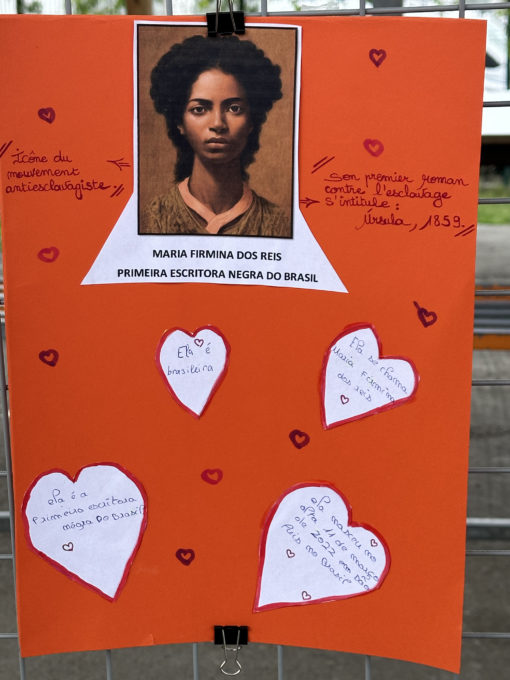 MARIA FIRMINA DOS REIS
PRIMEIRA ESCRITORA NEGRA DO BRASIL
Icône du
mouvement
antiesclavagiste
Son premier roman
contre l'esclavage
s'intitule :
Úrsula, 1859.
Ela é
brasileira
Ela se chama
Maria Firmina
dos reis
ela é a
Primeira escritora
négra Do Brasil
ela nasceu no
dia 11 de março
de 2022 em São
Luis no
Brasil